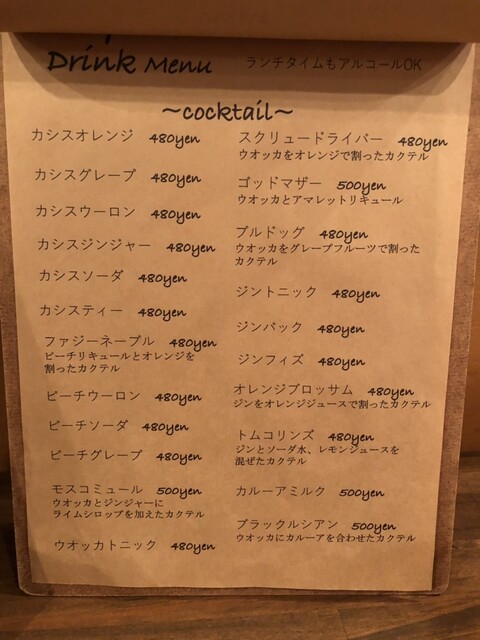 Drink Menu
ランチタイムもアルコールOK
~cocktail~
カシスオレンジ 480yen
カシスグレープ 480yen
カシスウーロン 480yen
カシスジンジャー 480yen
カシスソーダ 480yen
カシスティー 480yen
ファジーネーブル 480yen
ピーチリキュールとオレンジを
割ったカクテル
ピーチウーロン 480yen
ピーチソーダ 480yen
ピーチグレープ 480yen
モスコミュール 500yen
ウオッカとジンジャーに
ライムシロップを加えたカクテル
ウオッカトニック 480yen
スクリュードライバー 480yen
ウオッカをオレンジで割ったカクテル
ゴッドマザー 500yen
ウオッカとアマレットリキュール
ブルドッグ 480yen
ウオッカをグレープフルーツで割った
カクテル
ジントニック 480yen
ジンバック 480yen
ジンフィズ 480yen
オレンジブロッサム 480yen
ジンをオレンジジュースで割ったカクテル
トムコリンズ 480yen
ジンとソーダ水、レモンジュースを
混ぜたカクテル
カルーアミルク 500yen
ブラックルシアン 500yen
ウオッカにカルーアを合わせたカクテル